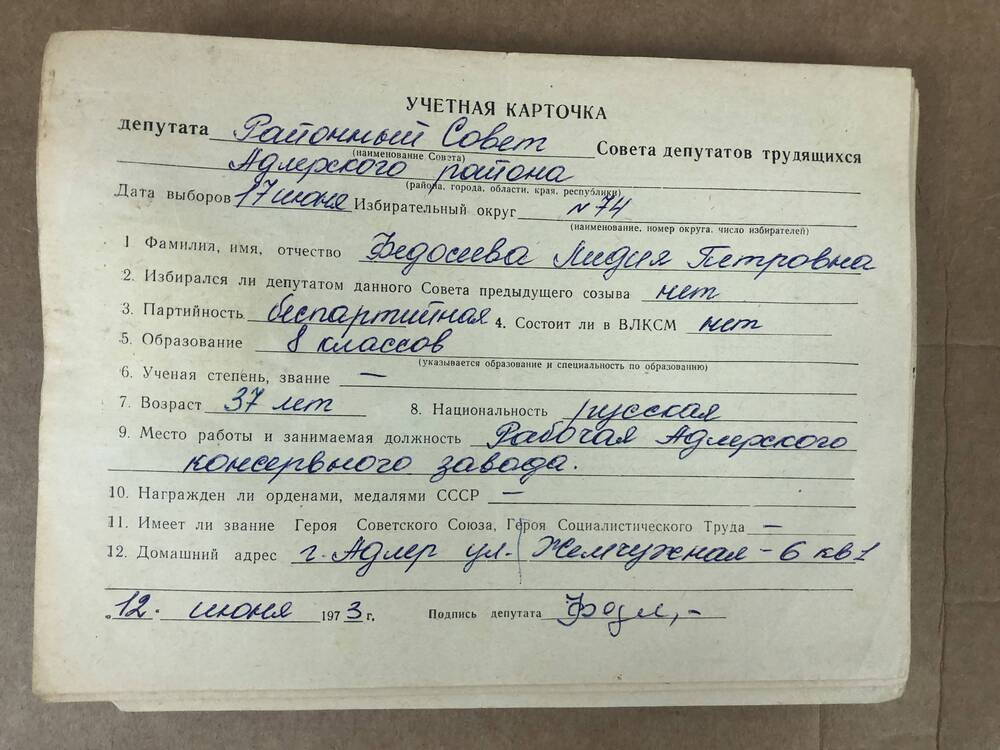 УЧЕТНАЯ КАРТОЧКА
депутата Районный Совет Совета депутатов трудящихся
(наименование Совета)
Адлерского района
(района, города, области, края, республики)
Дата выборов 17 июня Избирательный округ № 74
(наименование, номер округа, число избирателей)
1 Фамилия, имя, отчество Федосева Лидия Петровна
2. Избирался ли депутатом данного Совета предыдущего созыва нет
3. Партийность беспартийная 4. Состоит ли в ВЛКСМ нет
5. Образование 8 классов
(указывается образование и специальность по образованию)
6. Ученая степень, звание —
7. Возраст 37 лет 8. Национальность русская
9. Место работы и занимаемая должность Рабочая Адлерского
консервного завада.
10. Награжден ли орденами, медалями СССР —
11. Имеет ли звание Героя Советского Союза, Героя Социалистического Труда —
12. Домашний адрес г. Адлер ул. Жемчужная – 6 кв 1
„12. июня 1973 г. Подпись депутата